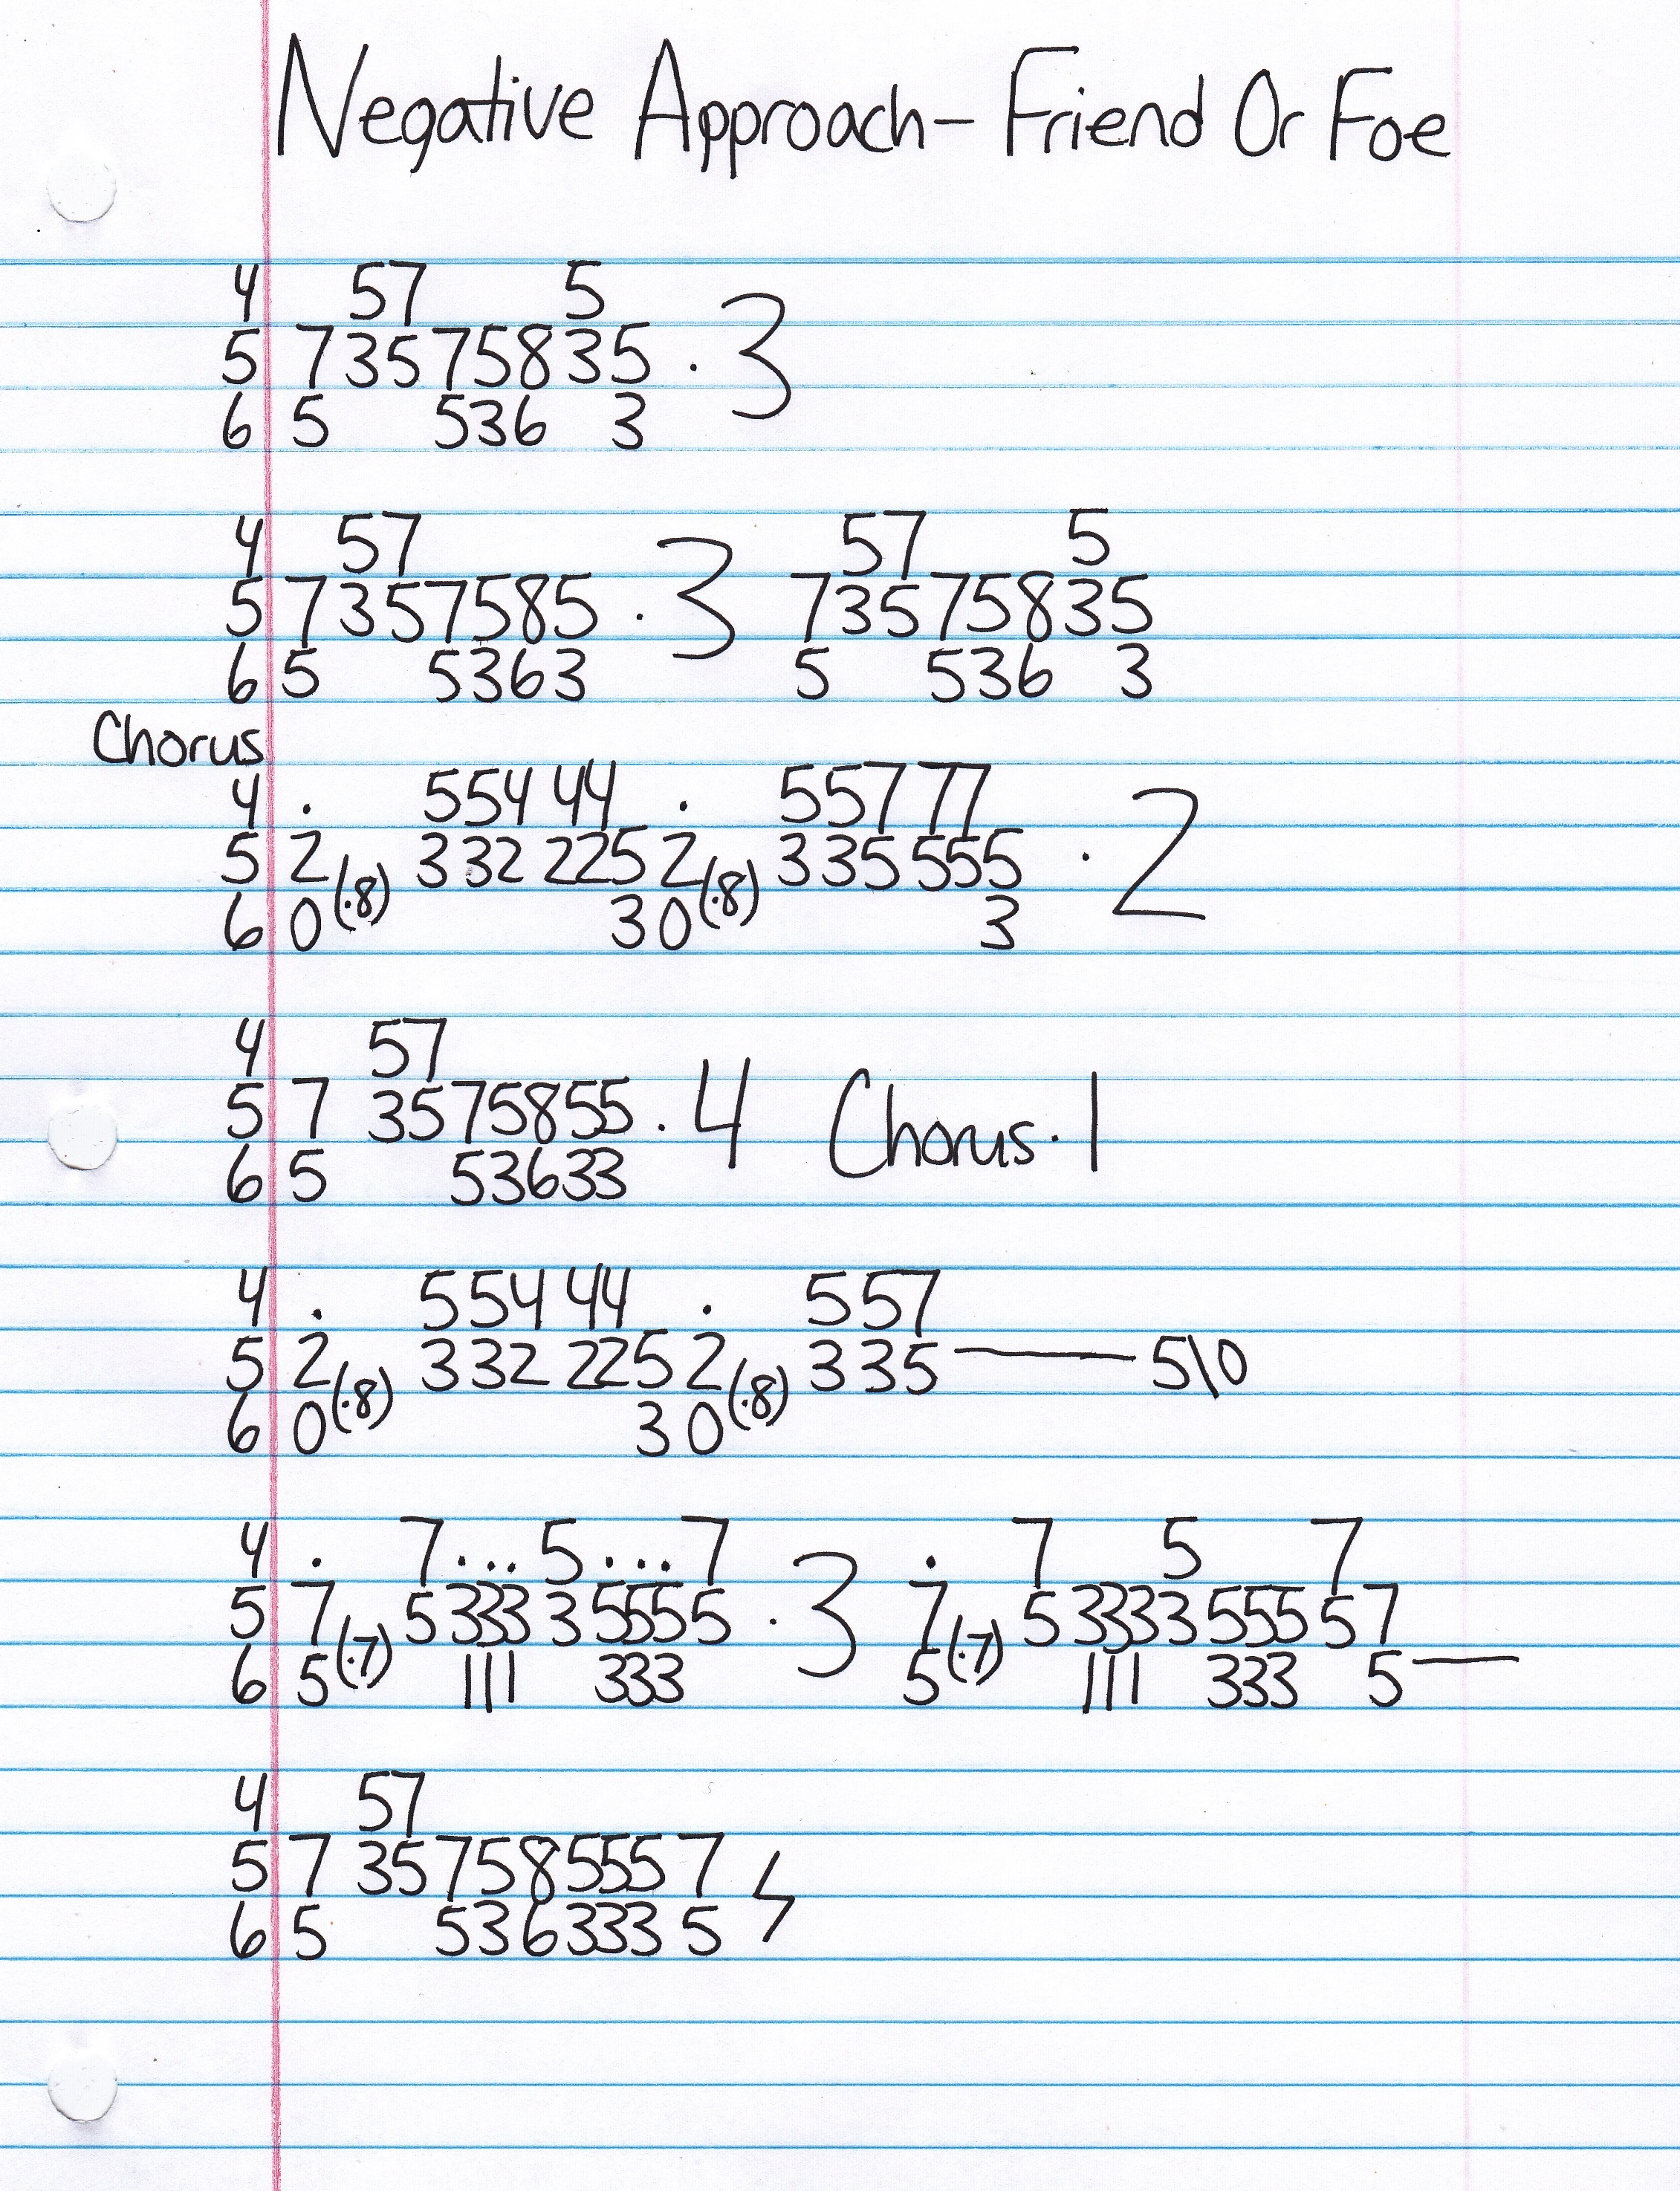 Negative Approach - Friend Or Foe
4 57 5
5 7 35 75835 . 3
6 5 536 3
4 57 57 5
5 7357585 . 3 73575835
6 5 5363 5 536 3
Chorus
4 . 554 44 . 557 77
5 2 (.8) 332 225 2 (.8) 335 555 . 2
6 0 3 0 3
4 57
5 7 3575855 . 4 Chorus . 1
6 5 53633
4 . 554 44 . 557
5 2 (.8) 332 225 2 (.8) 335 — 5\0
6 0 3 0
4 . 7...5...7 . 7 5 7
5 7 (.7) 5 333 3 555 5 . 3 7 (.7) 5 3333 555 57
6 5 111 333 5 111 333 5 —
4 57
5 7 3575855 5 7
6 5 536333 5